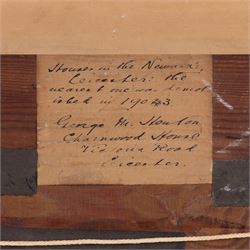 Houses in the Newarke,
Leicester: the
nearest one was demol
ished in 1903
George M. Henton
Charnwood House
Victoria Road
Leicester.